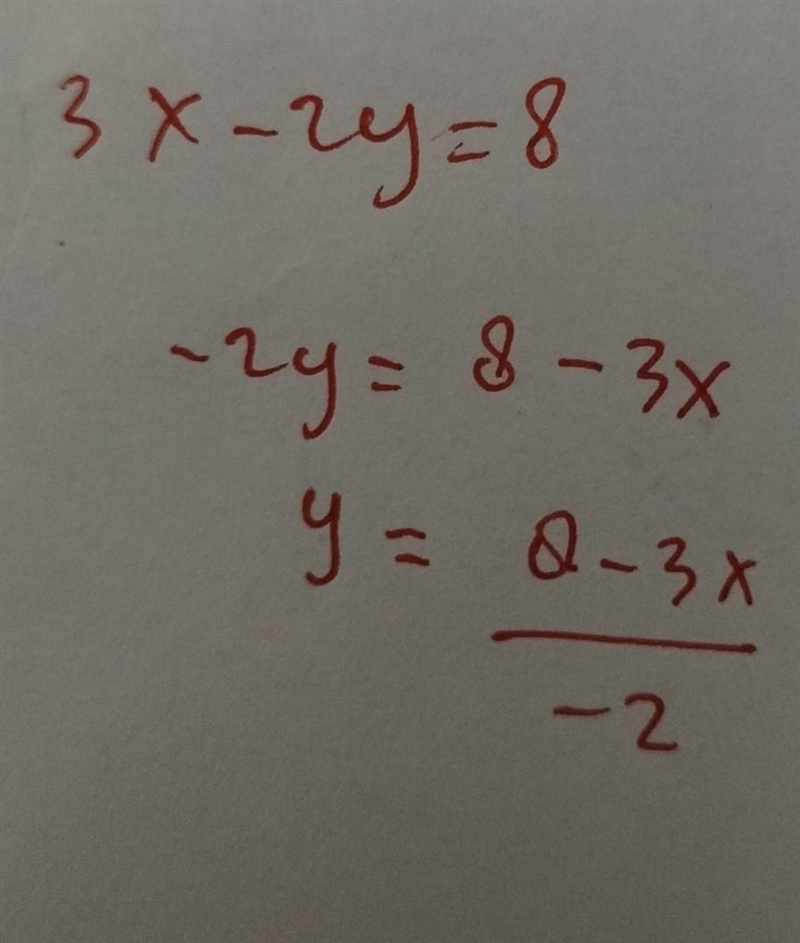 3x - 2y = 8
-2y = 8 - 3x
y = 8 - 3x
-2